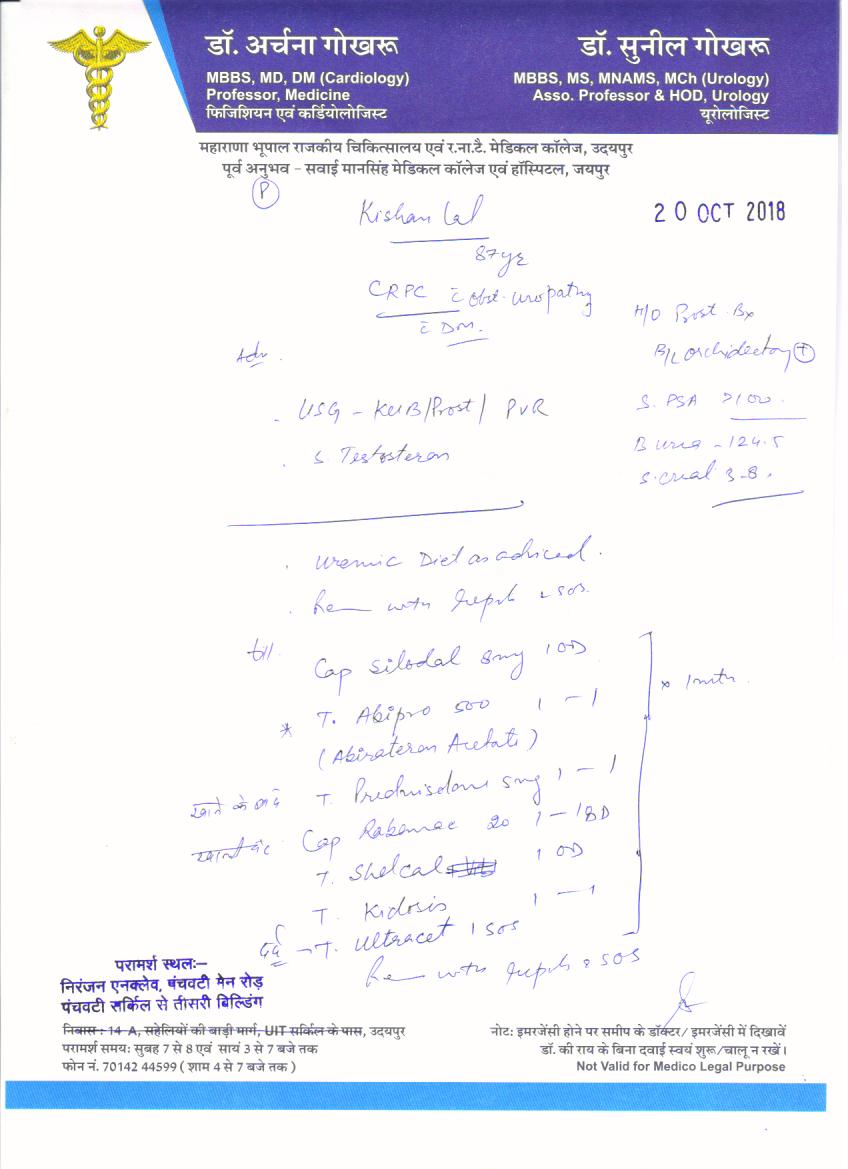 डॉ. अर्चना गोखरू
MBBS, MD, DM (Cardiology)
Professor, Medicine
फिजिशियन एवं कर्डियोलोजिस्ट
डॉ. सुनील गोखरू
MBBS, MS, MNAMS, MCh (Urology)
Asso. Professor & HOD, Urology
यूरोलोजिस्ट
महाराणा भूपाल राजकीय चिकित्सालय एवं र.ना.टै. मेडिकल कॉलेज, उदयपुर
पूर्व अनुभव – सवाई मानसिंह मेडिकल कॉलेज एवं हॉस्पिटल, जयपुर
P
Kishan Lal
20 OCT 2018
87 yr
CRPC c̄ obst. uropathy
c̄ DM.
H/O Prost Bx
B/L orchidectomy +
S. PSA >100.
B urea - 124.5
S. creat 3.8.
Adv.
. USG - KUB/Prost/ PVR
. S. Testosteron
. Uremic Diet as adviced.
. Rev with reports & SOS.
Cap Silodal 8mg 1 OD
x 1 mth.
* T. Abipro 500 1 - 1
(Abirateron Acetate)
खाने के बाद T. Prednisolone 5mg 1 - 1
खाली पेट Cap Rabemac 20 1 - 1 BD
T. Shelcal 1 OD
T. Kidosis 1 - 1
दर्द → T. Ultracet 1 SOS
Rev with reports & SOS
परामर्श स्थल:–
निरंजन एनक्लेव, पंचवटी मेन रोड़
पंचवटी सर्किल से तीसरी बिल्डिंग
निवास : 14 A, सहेलियों की बाड़ी मार्ग, UIT सर्किल के पास, उदयपुर
परामर्श समय: सुबह 7 से 8 एवं सायं 3 से 7 बजे तक
फोन नं. 70142 44599 ( शाम 4 से 7 बजे तक )
नोट: इमरजेंसी होने पर समीप के डॉक्टर/ इमरजेंसी में दिखावें
डॉ. की राय के बिना दवाई स्वयं शुरू/चालू न रखें।
Not Valid for Medico Legal Purpose